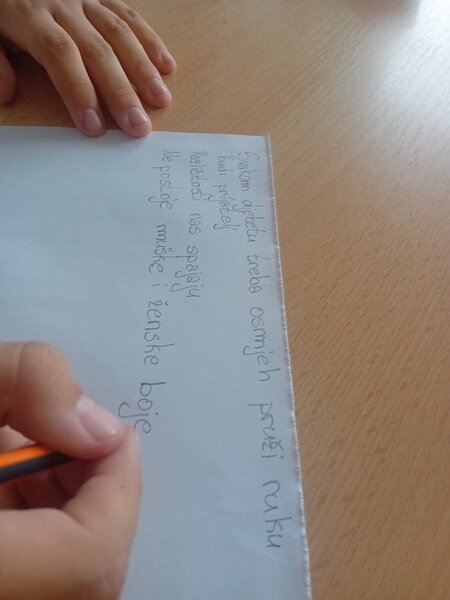 Svakom djetetu treba osmjeh pruži ruku
budi prijatelj
Različitosti nas spajaju
Ne postoje muške i ženske boje